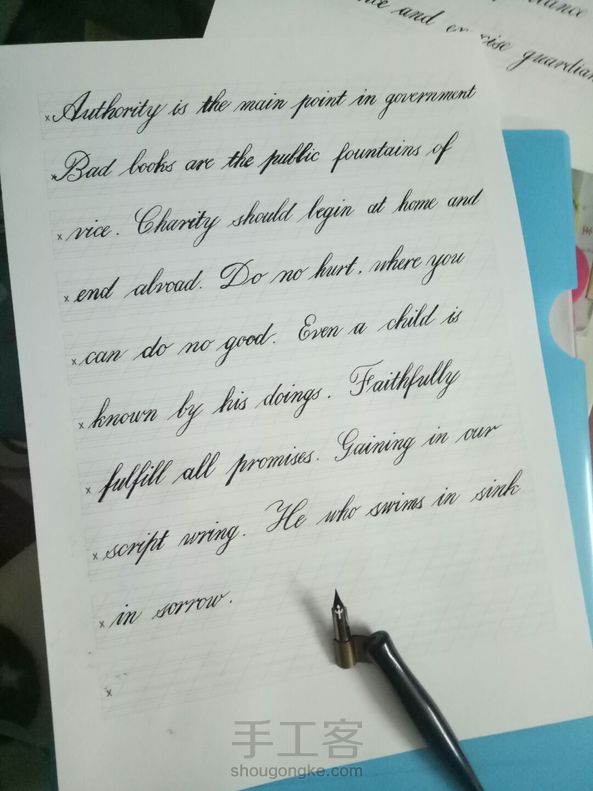 Authority is the main point in government
Bad books are the public fountains of
vice. Charity should begin at home and
end abroad. Do no hurt, where you
can do no good. Even a child is
known by his doings. Faithfully
fulfill all promises. Gaining in our
script wring. He who swims in sink
in sorrow.
and exercise guardian
手工客
shougongke.com